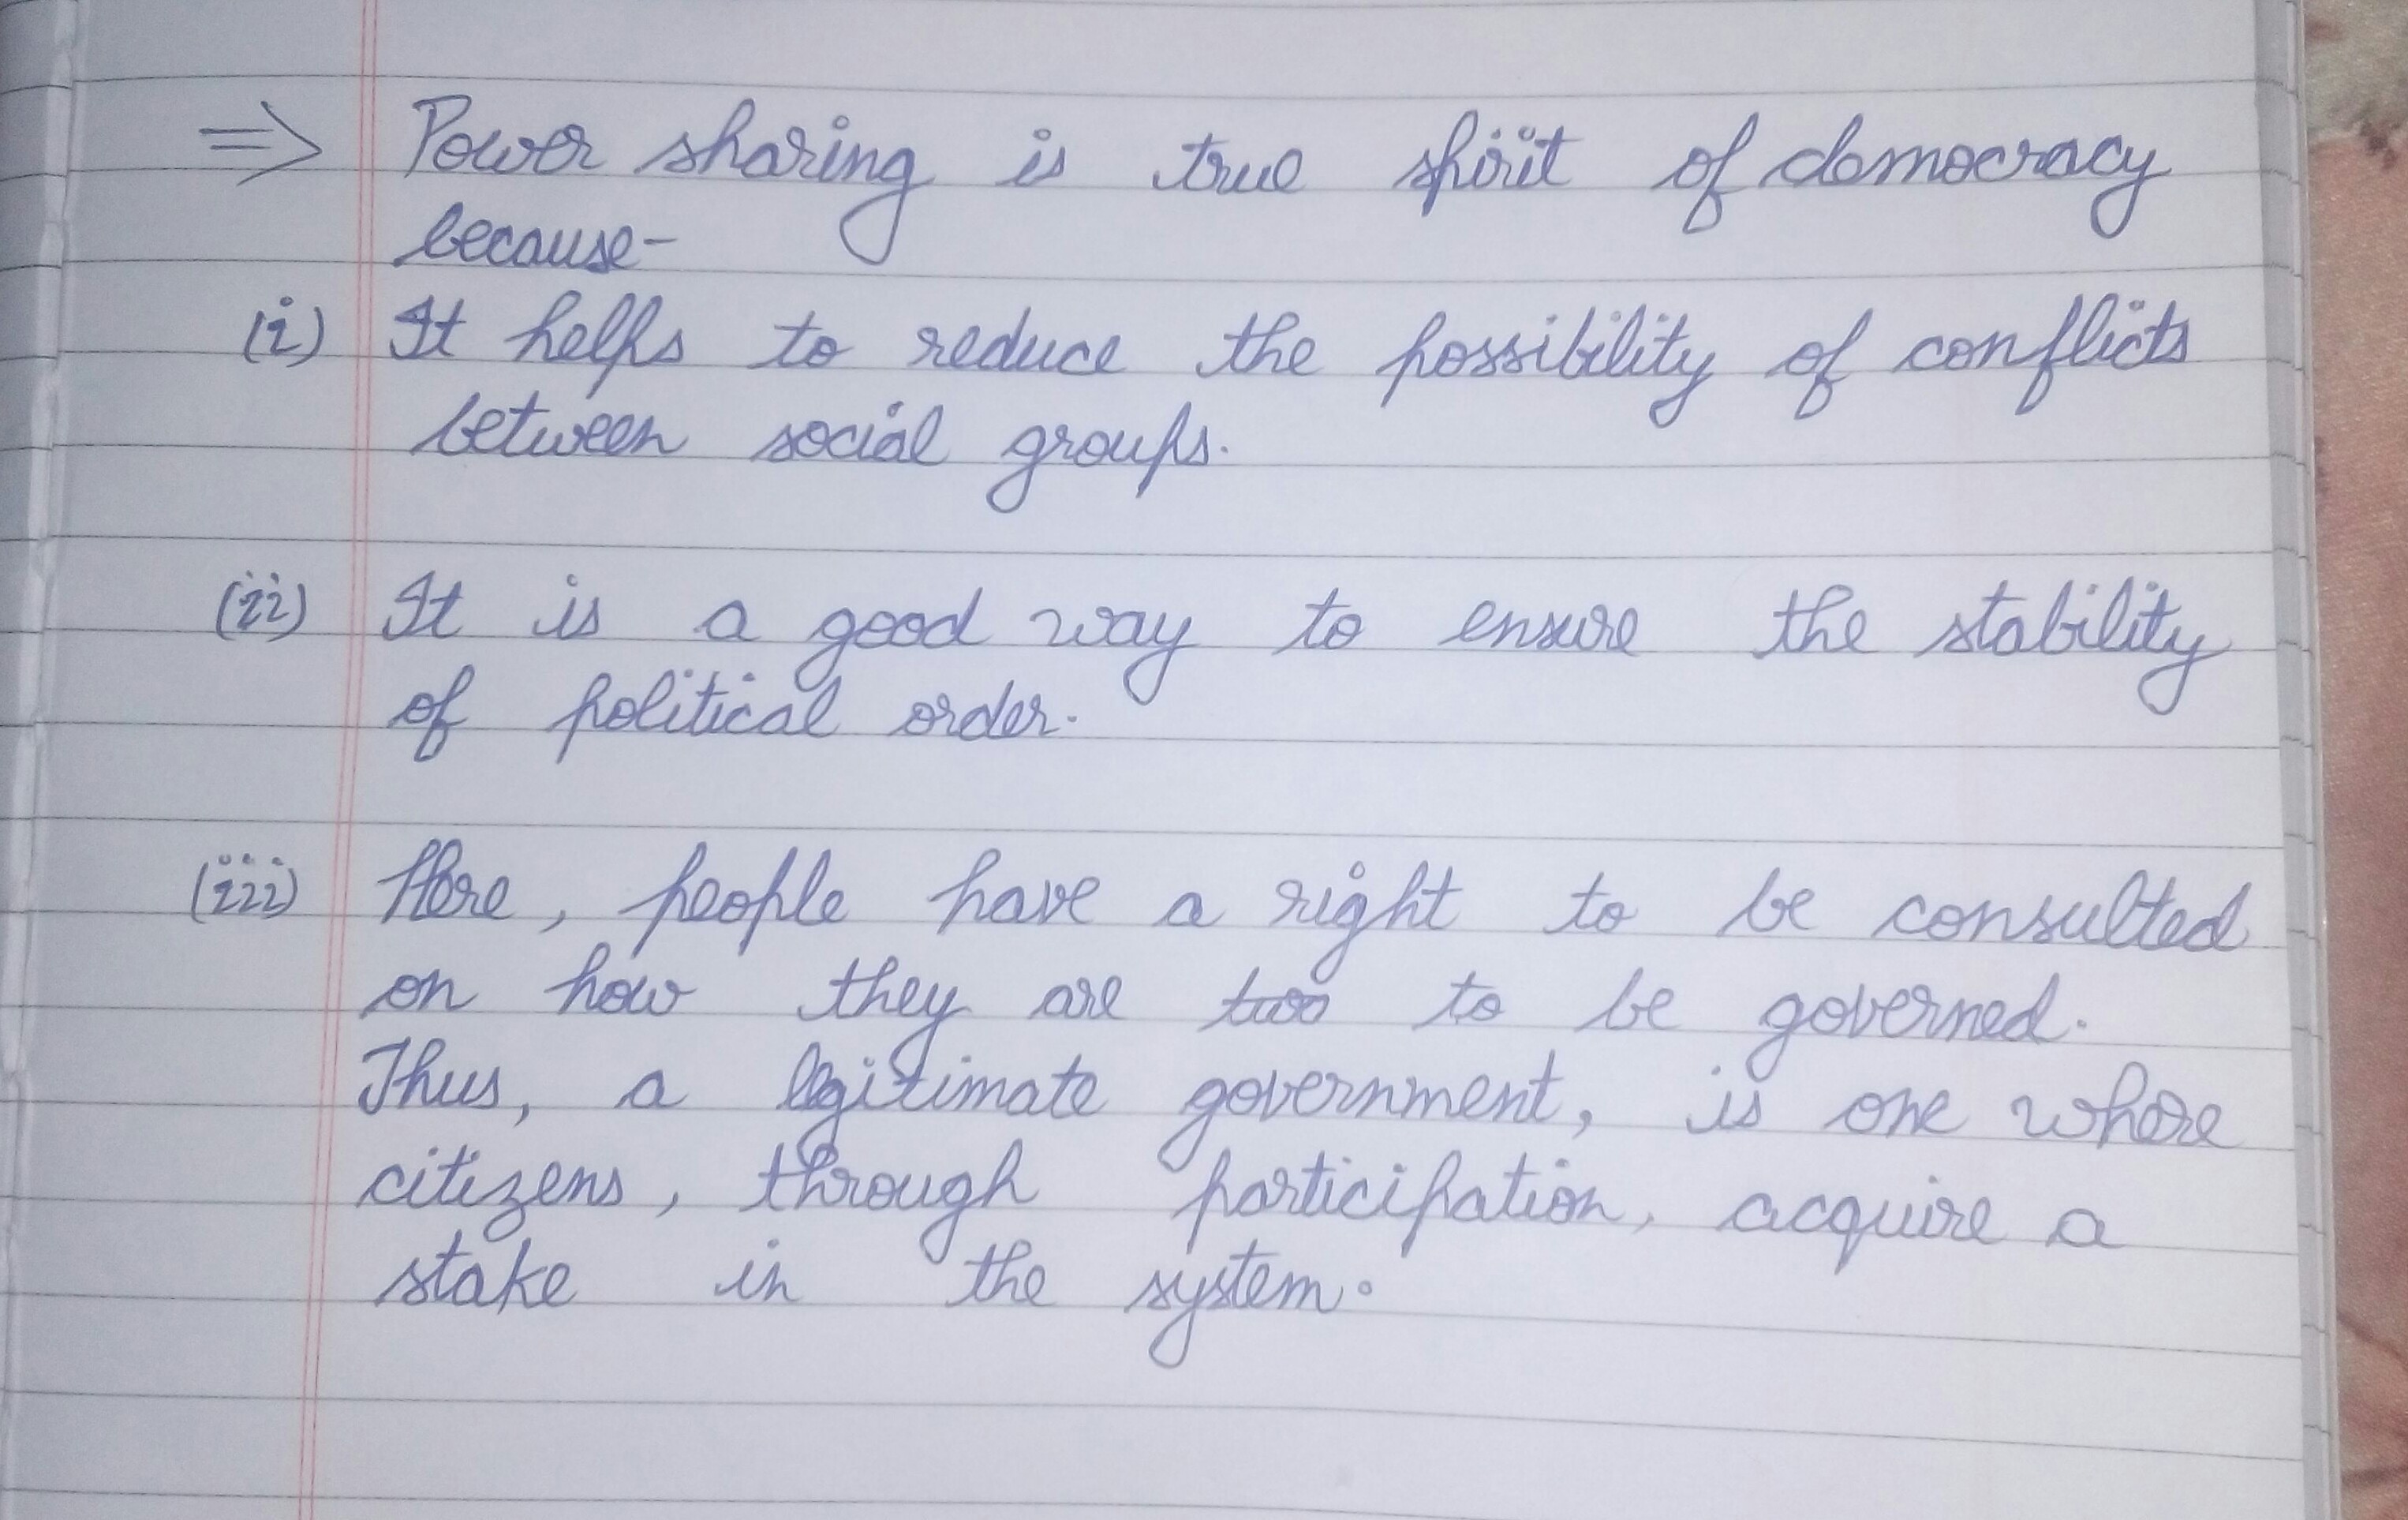 ⇒ Power sharing is true spirit of democracy
because-
(i) It helps to reduce the possibility of conflicts
between social groups.
(ii) It is a good way to ensure the stability
of political order.
(iii) Here, people have a right to be consulted
on how they are to be governed.
Thus, a legitimate government, is one where
citizens, through participation, acquire a
stake in the system.